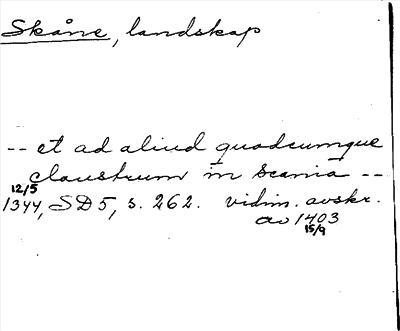 Skåne, landskap
-- et ad aliud quodcumque
claustrum in Scania --
12/5
1344, SD 5, s. 262. vidim. avskr.
av 1403
15/9